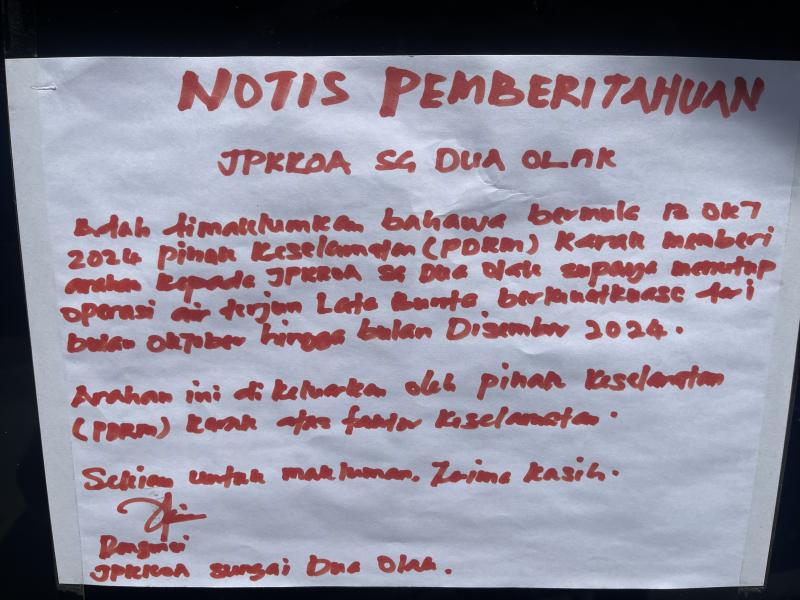 NOTIS PEMBERITAHUAN
JPKKOA SG DUA OLAK
Adalah dimaklumkan bahawa bermula 12 OKT
2024 pihak Keselamatan (PDRM) Karak memberi
arahan kepada JPKKOA SG Dua Olak supaya menutup
operasi air terjun Lata berkuatkuasa dari
bulan Oktober hingga bulan Disember 2024.
Arahan ini di keluarkan oleh pihak Keselamatan
(PDRM) Karak atas faktor Keselamatan.
Sekian untuk makluman. Terima kasih.
Pengerusi
JPKKOA Sungai Dua Olak.